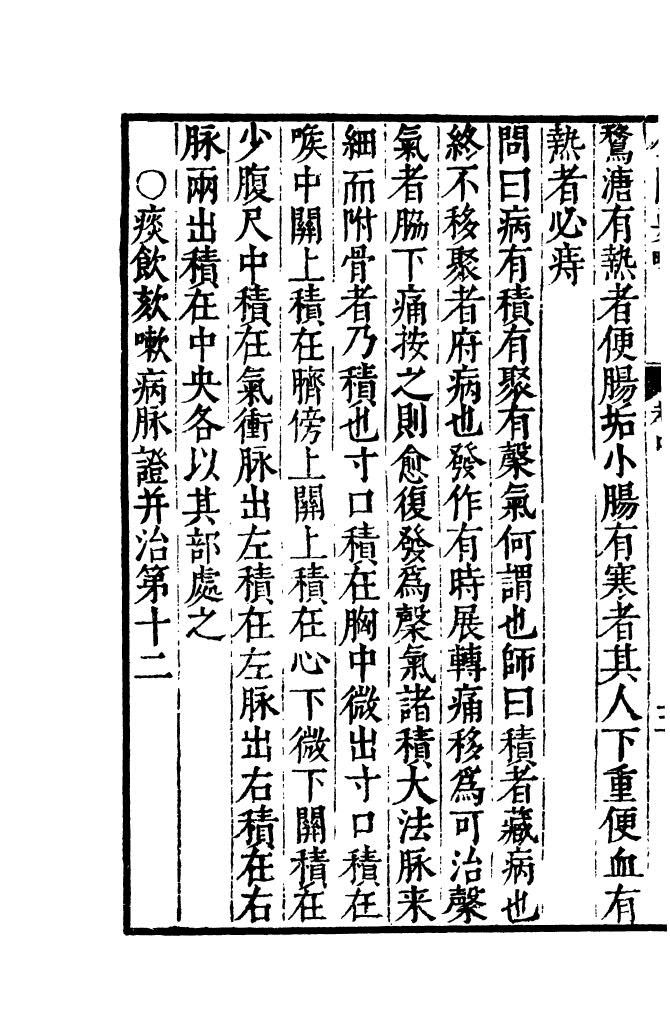 鶩溏有熱者便腸垢小腸有寒者其人下重便血有
熱者必痔
問曰病有積有聚有䅽氣何謂也師曰積者藏病也
終不移聚者府病也發作有時展轉痛移爲可治䅽
氣者脇下痛按之則愈復發爲䅽氣諸積大法脉来
細而附骨者乃積也寸口積在胸中微出寸口積在
喉中關上積在臍傍上關上積在心下微下關積在
少腹尺中積在氣衝脉出左積在左脉出右積在右
脉兩出積在中央各以其部處之
○痰飲欬嗽病脉證并治第十二